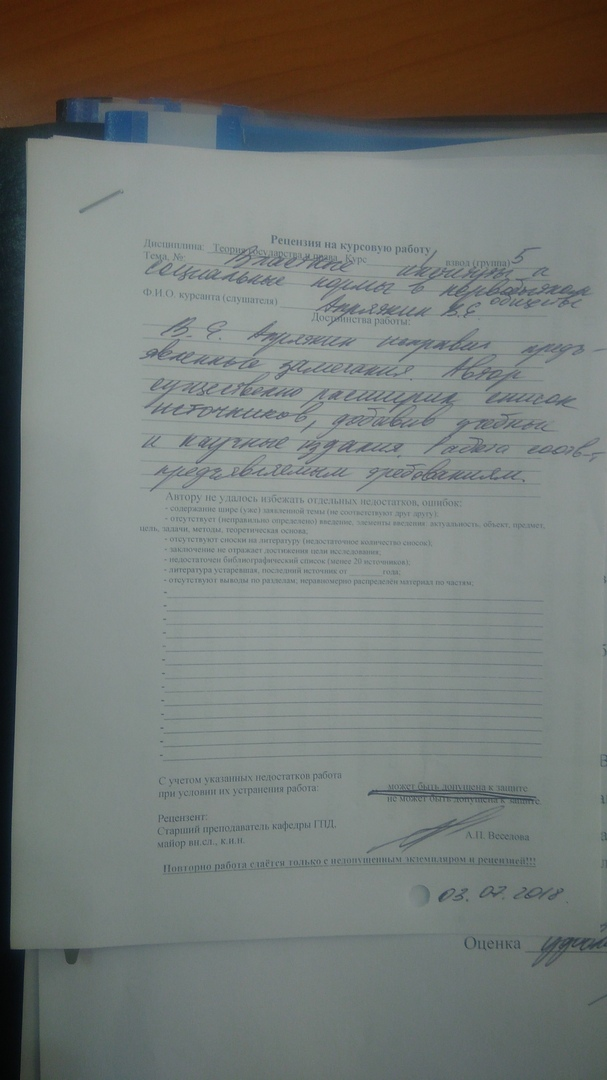 Рецензия на курсовую работу
Дисциплина: Теория государства и права Курс 1 взвод (группа) 5
Тема, №: Властные институты и
социальные нормы в первобытном
обществе
Ф.И.О. курсанта (слушателя) Апряжин В.Е.
Достоинства работы:
В. Е. Апряжин исправил предъ-
явленные замечания. Автор
существенно расширил список
источников, добавив учебные
и научные издания. Работа соотв-т
предъявляемым требованиям.
Автору не удалось избежать отдельных недостатков, ошибок:
- содержание шире (уже) заявленной темы (не соответствуют друг другу);
- отсутствует (неправильно определено) введение, элементы введения: актуальность, объект, предмет,
цель, задачи, методы, теоретическая основа;
- отсутствуют сноски на литературу (недостаточное количество сносок);
- заключение не отражает достижения цели исследования;
- недостаточен библиографический список (менее 20 источников);
- литература устаревшая, последний источник от ________ года;
- отсутствуют выводы по разделам; неравномерно распределён материал по частям;
С учетом указанных недостатков работа
при условии их устранения работа:
может быть допущена к защите
не может быть допущена к защите.
Рецензент:
Старший преподаватель кафедры ГПД,
майор вн.сл., к.и.н.
А.П. Веселова
Повторно работа сдаётся только с недопущенным экземпляром и рецензией!!!
03.07.2018.
Оценка